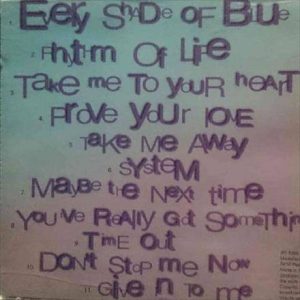 1. Every Shade Of Blue
2. Rhythm Of Life
3. Take me To youR heart
4. Prove your love
5. Take Me Away
6. System
7. Maybe the Next time
8. You've Really Got Somethin
9. Time Out
10. Don't Stop me Now
11. Given To me